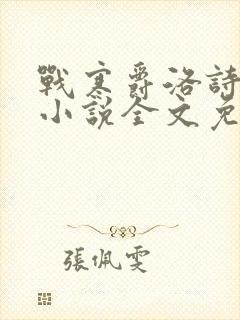 戰寒爵洛詩
小說全文免
張佩雯